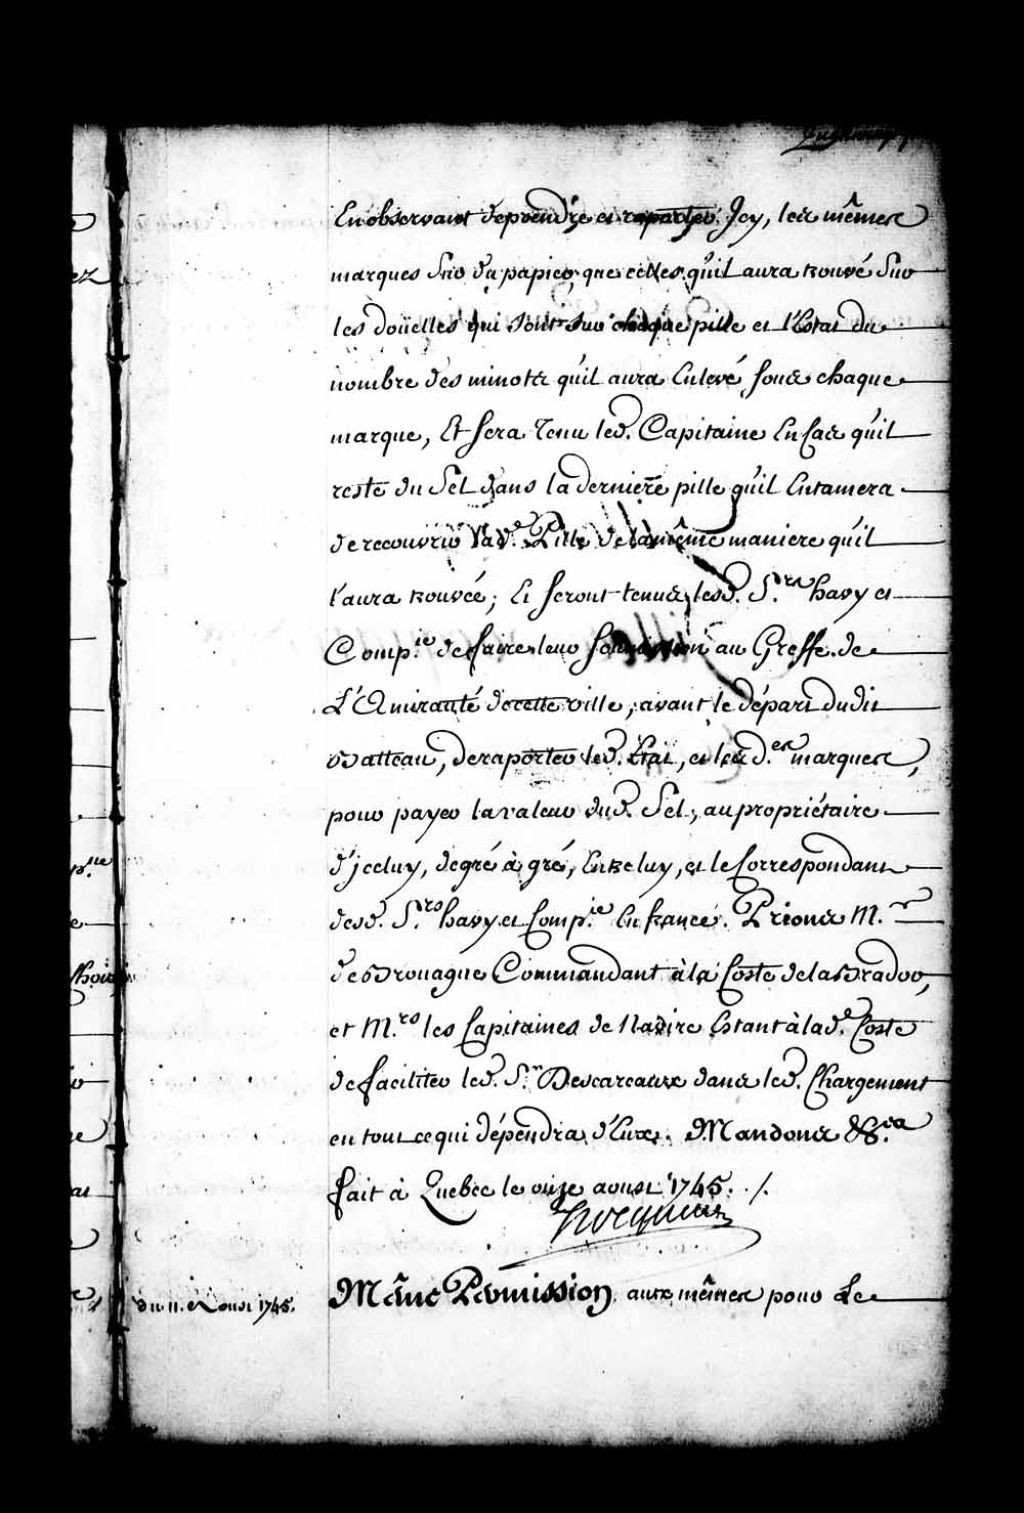 En observant de prendre et raporter Jcy, les mêmes
marques Sur du papier, que celles, qu'il aura trouvé Sur
les doüelles qui sont sur chaque pille et l'Estat du
nombre des minots qu'il aura Enlevé sous chaque
marque, Et sera Tenu led. Capitaine En Cas qu'il
reste du Sel dans la derniere pille qu'il Entamera
de recouvrir lad.e Pille de la même maniere qu'il
l'aura trouvée; Et seront tenus, lesd. S.rs havy et
Comp.ie de faire leur soumission au Greffe de
L'Amirauté de cette ville, avant le départ dudit
Batteau, de raporter led. Etat, et les d.es marques,
pour payer la valeur dud. Sel, au propriétaire
d'jceluy, de gré à gré, Entre luy, et le Correspondant
desd. S.rs havy et Comp.ie En france. Prions M.r
de Brouague Commandant à la Coste de la Brador,
et M.rs les Capitaines de Navire Estant à lad.e Coste
de faciliter led. S.r Descareaux dans led. Chargement
en tout ce qui dépendra d'Eux. Mandons &c.a
fait à Quebec le onze aoust 1745. ./.
Hocquart
du 11. Aoust 1745. Même Permission aux mêmes pour Le